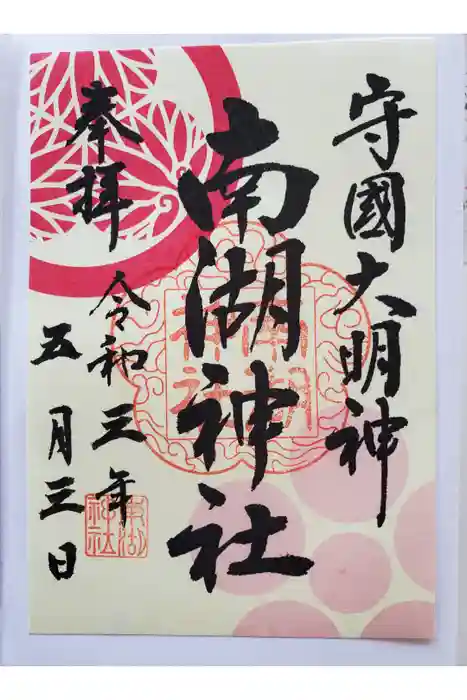 守國大明神
南湖神社
南湖
神社
奉拝
令和三年
五月三日
南湖
神社